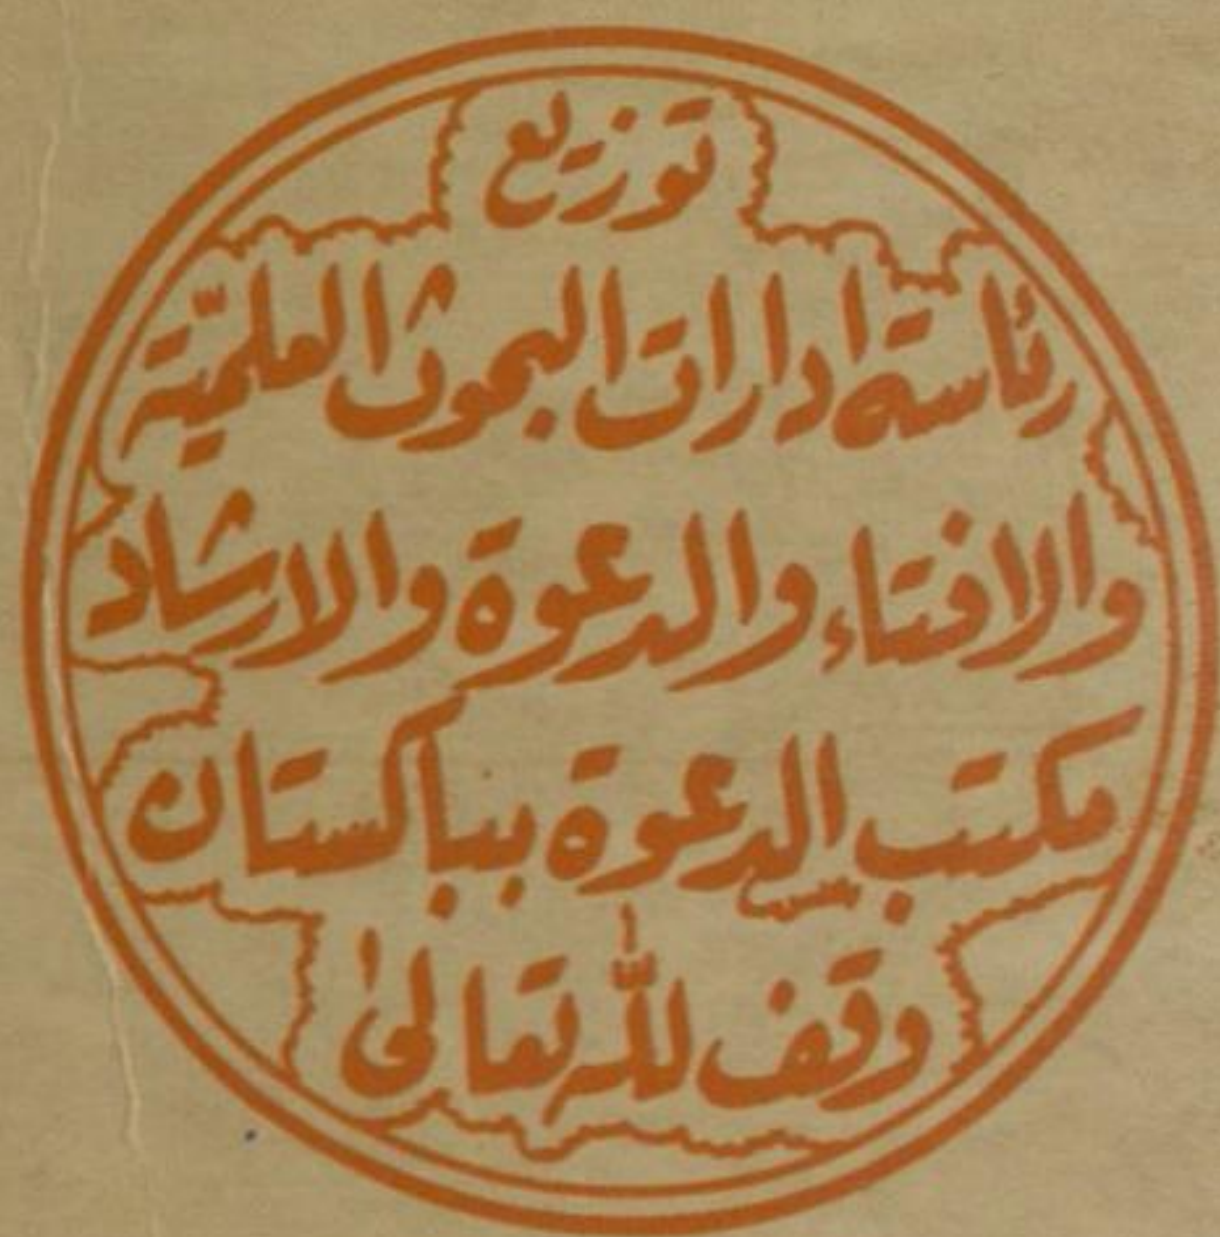 توزيع
رئاسة ادارات البحوث العلميّة
والافتاء والدعوة والارشاد
مكتب الدعوة بباكستان
وقف لله تعالىٰ